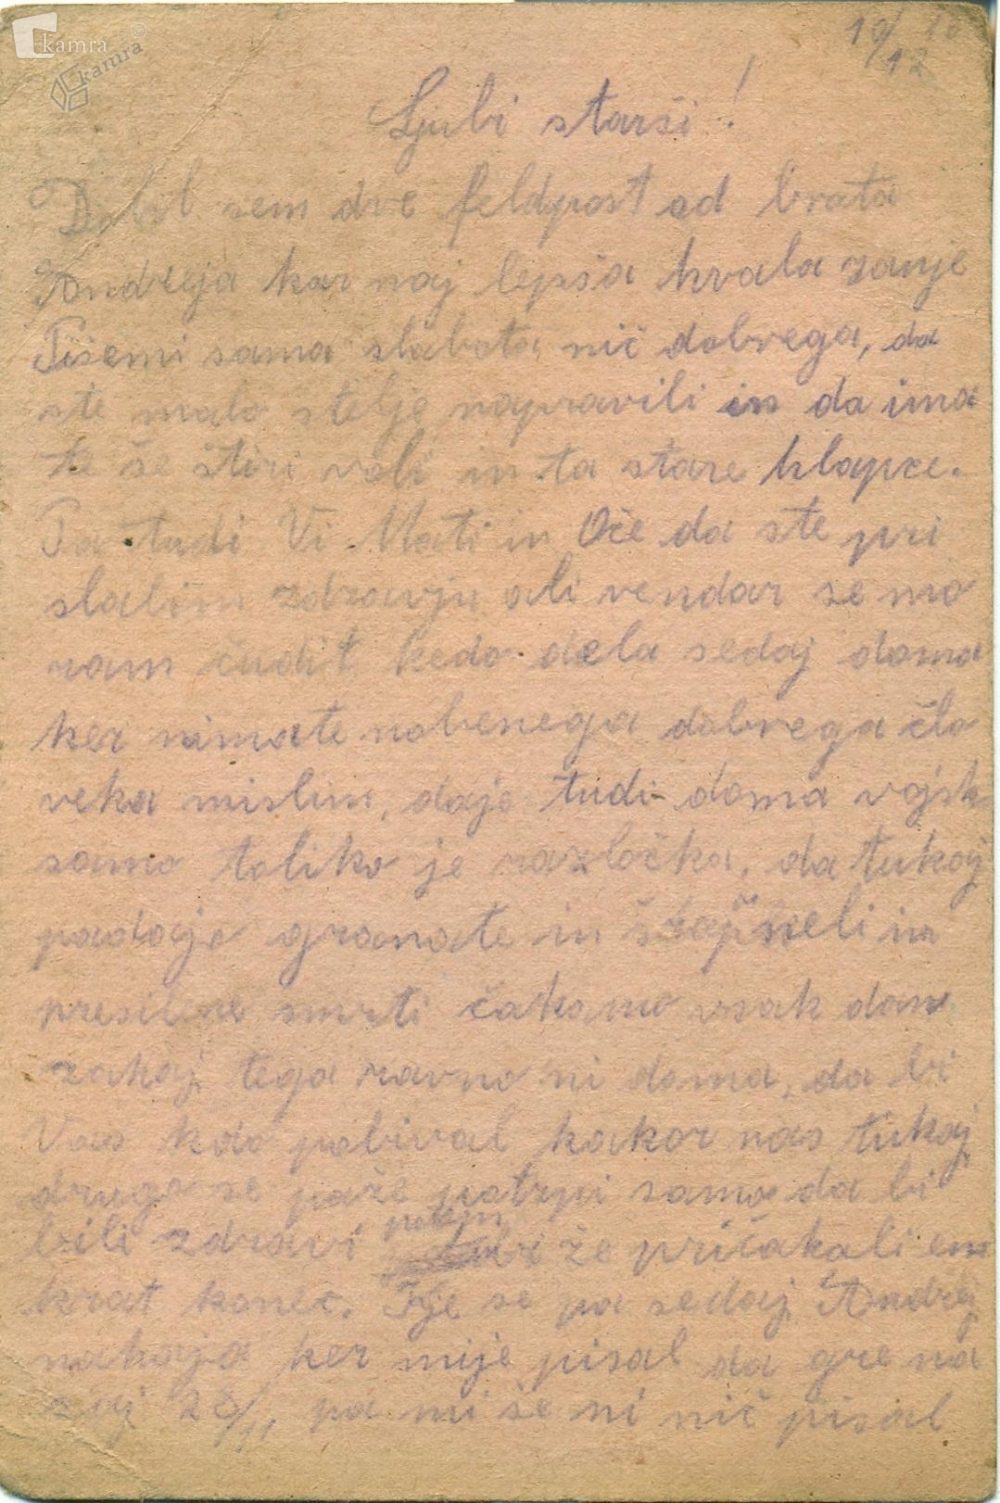 kamra
kamra
10/12
Ljubi starši!
Dobil sem dve feldpost od brata
Andreja kar naj lepša hvala zanje
Pišemi sama slabota nič dobrega, da
ste malo stelje napravili in da ima
te še štiri voli in ta stare hlapce.
Pa tudi Vi Mati in Oče da ste pri
slabim zdravju ali vendar se mo
ram čudit kedo dela sedaj doma
ker nimate nobenega dobrega člo
veka mislim, daje tudi doma vojska
samo toliko je razločka, da tukaj
padajo granate in šrapneli in
presilne smrti čakamo vsak dan
zakaj tega ravno ni doma, da bi
Vas kdo pobival kakor nas tukaj
drugo se paže potrpi samo da bi
bili zdravi potem bi že pričakali en
krat konec. Kje se pa sedaj Andrej
nahaja ker mije pisal da gre na
zaj 28/11, pa mi še ni nič pisal